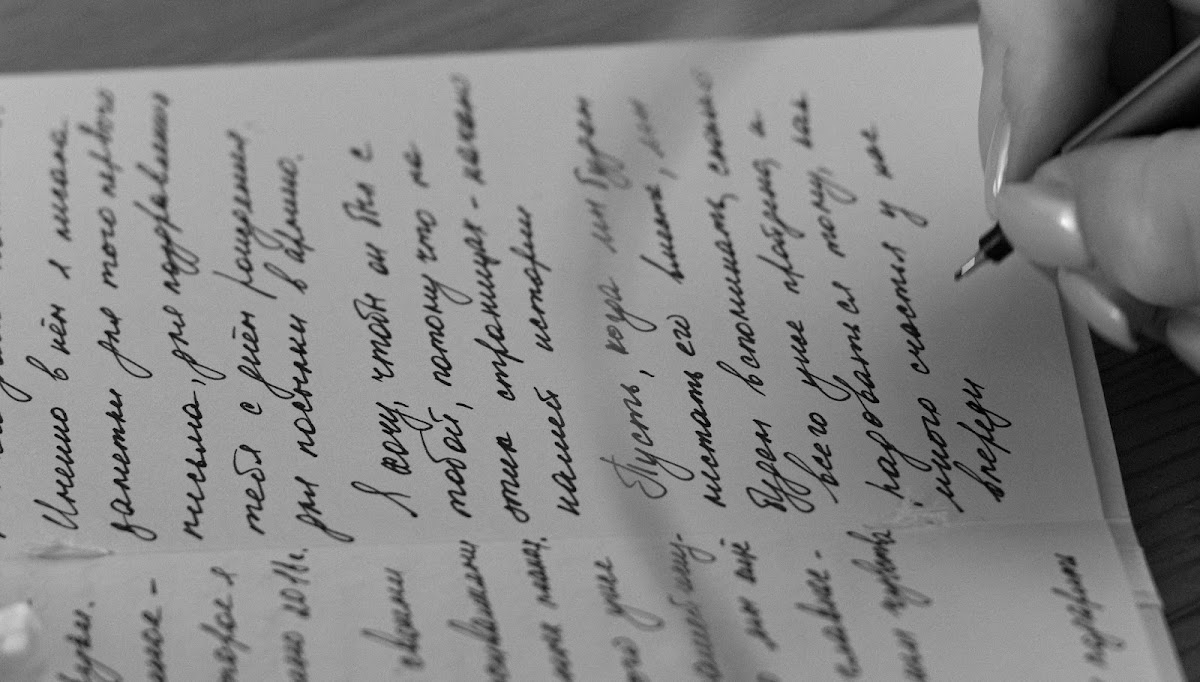 торое я
2011г.
своими
уже
мы ещё
главное-
чувства
Именно в нём я писала
заметки для того первого
письма, для поздравления
тебя с днём рождения,
для посылки в армию.
Я хочу, чтобы он был с
тобой, потому что на
этих страницах - начало
нашей истории
Пусть, когда мы будем
листать его вместе, мы
будем вспоминать, сколько
всего уже пройдено и
радоваться тому, как
много счастья у нас
впереди